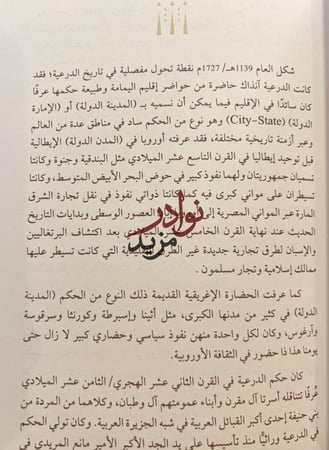 شكل العام 1139هـ/ 1727م نقطة تحول مفصلية في تاريخ الدرعية؛ فقد
كانت الدرعية آنذاك حاضرة من حواضر إقليم اليمامة وطبيعة حكمها عرفًا
كان سائدًا في الإقليم فيما يمكن أن نسميه بـ (المدينة الدولة) أو (الإمارة
الدولة) (City-State) وهو نوع من الحكم ساد في مناطق عدة من العالم
وعبر أزمنة تاريخية مختلفة، فقد عرفته أوروبا في (المدن الدولة) الإيطالية
قبل توحيد إيطاليا في القرن التاسع عشر الميلادي مثل البندقية وجنوة وكانتا
تسميان جمهوريتان ولهما نفوذ كبير في حوض البحر الأبيض المتوسط، وكانتا
تسيطران على مواني كبرى فيه كما كانتا ذواتي نفوذ في نقل تجارة الشرق
المارة عبر المواني المصرية إلى العصور الوسطى وبدايات التاريخ
الحديث عند نهاية القرن الخامس بعد اكتشاف البرتغاليين
والإسبان لطرق تجارية جديدة غير التي كانت تسيطر عليها
ممالك إسلامية وتجار مسلمون.
نوادر
مزيد
كما عرفت الحضارة الإغريقية القديمة ذلك النوع من الحكم (المدينة
الدولة) في كثير من مدنها الكبرى، مثل أثينا وإسبرطة وكورنثا وسرقوسة
وآرغوس، وكان لكل واحدة منهن نفوذ سياسي وحضاري كبير لا زال حتى
يومنا هذا ذا حضور في الثقافة الأوروبية.
كان حكم الدرعية في القرن الثاني عشر الهجري/ الثامن عشر الميلادي
عرفًا تتناقله أسرتا آل مقرن وأبناء عمومتهم آل وطبان، وكلاهما من المردة من
بني حنيفة إحدى أكبر القبائل العربية في شبه الجزيرة العربية. وكان تولي الحكم
في الدرعية وراثيًّا منذ تأسيسها على يد الجد الأكبر الأمير مانع المريدي في